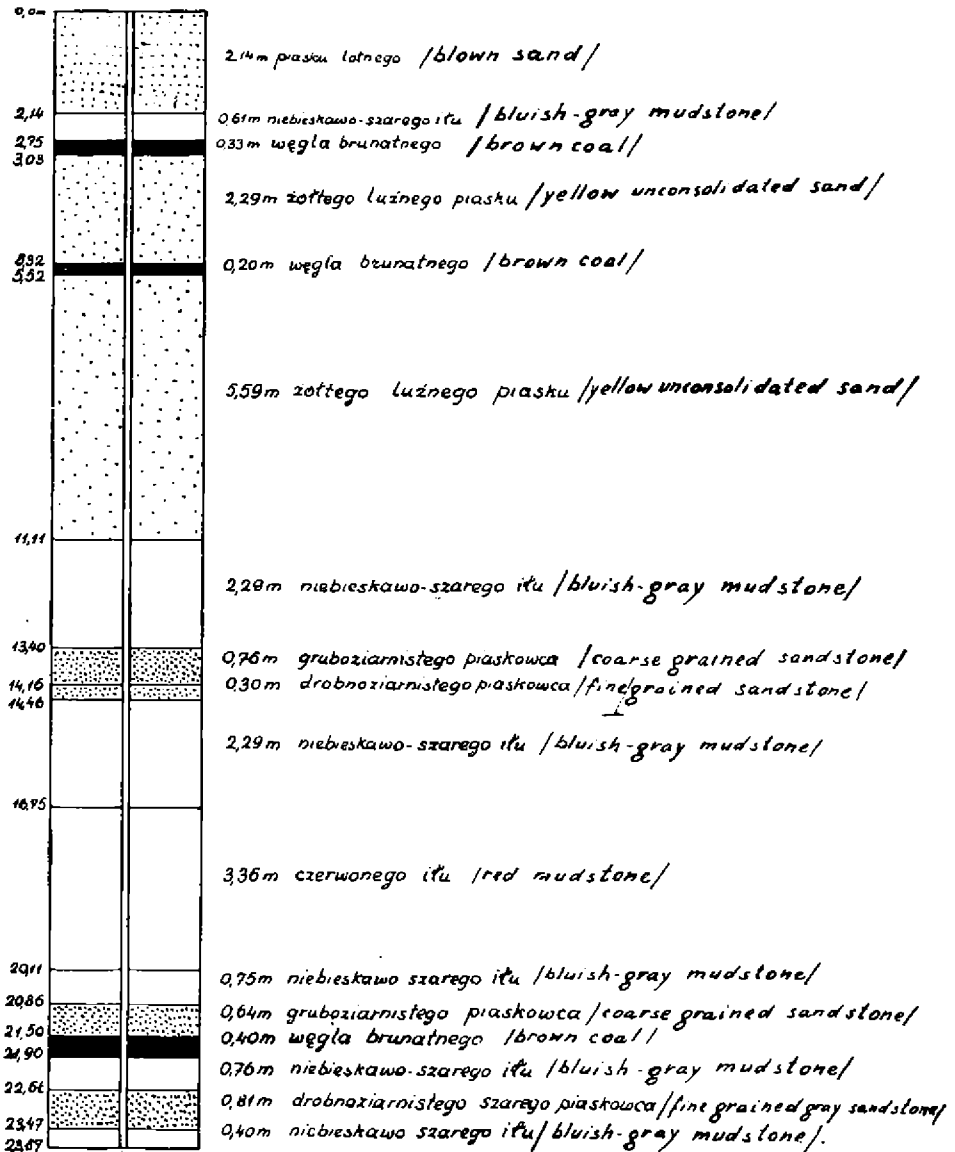 0,0m
2,14m piasku lotnego /blown sand/
2,14
0,61m niebieskawo-szarego iłu /bluish-gray mudstone/
2,75
0,33m węgla brunatnego /brown coal/
3,03
2,29m żółtego luźnego piasku /yellow unconsolidated sand/
0,20m węgla brunatnego /brown coal/
5,52
5,59m żółtego luźnego piasku /yellow unconsolidated sand/
11,11
2,28m niebieskawo-szarego iłu /bluish-gray mudstone/
13,40
0,76m gruboziarnistego piaskowca /coarse grained sandstone/
14,16
0,30m drobnoziarnistego piaskowca /fine grained sandstone/
14,46
2,29m niebieskawo-szarego iłu /bluish-gray mudstone/
16,75
3,36m czerwonego iłu /red mudstone/
20,11
0,75m niebieskawo szarego iłu /bluish-gray mudstone/
20,86
0,64m gruboziarnistego piaskowca /coarse grained sandstone/
21,50
0,40m węgla brunatnego /brown coal/
21,90
0,76m niebieskawo-szarego iłu /bluish-gray mudstone/
22,66
0,81m drobnoziarnistego szarego piaskowca /fine grained gray sandstone/
23,47
0,40m niebieskawo szarego iłu /bluish-gray mudstone/.
23,67